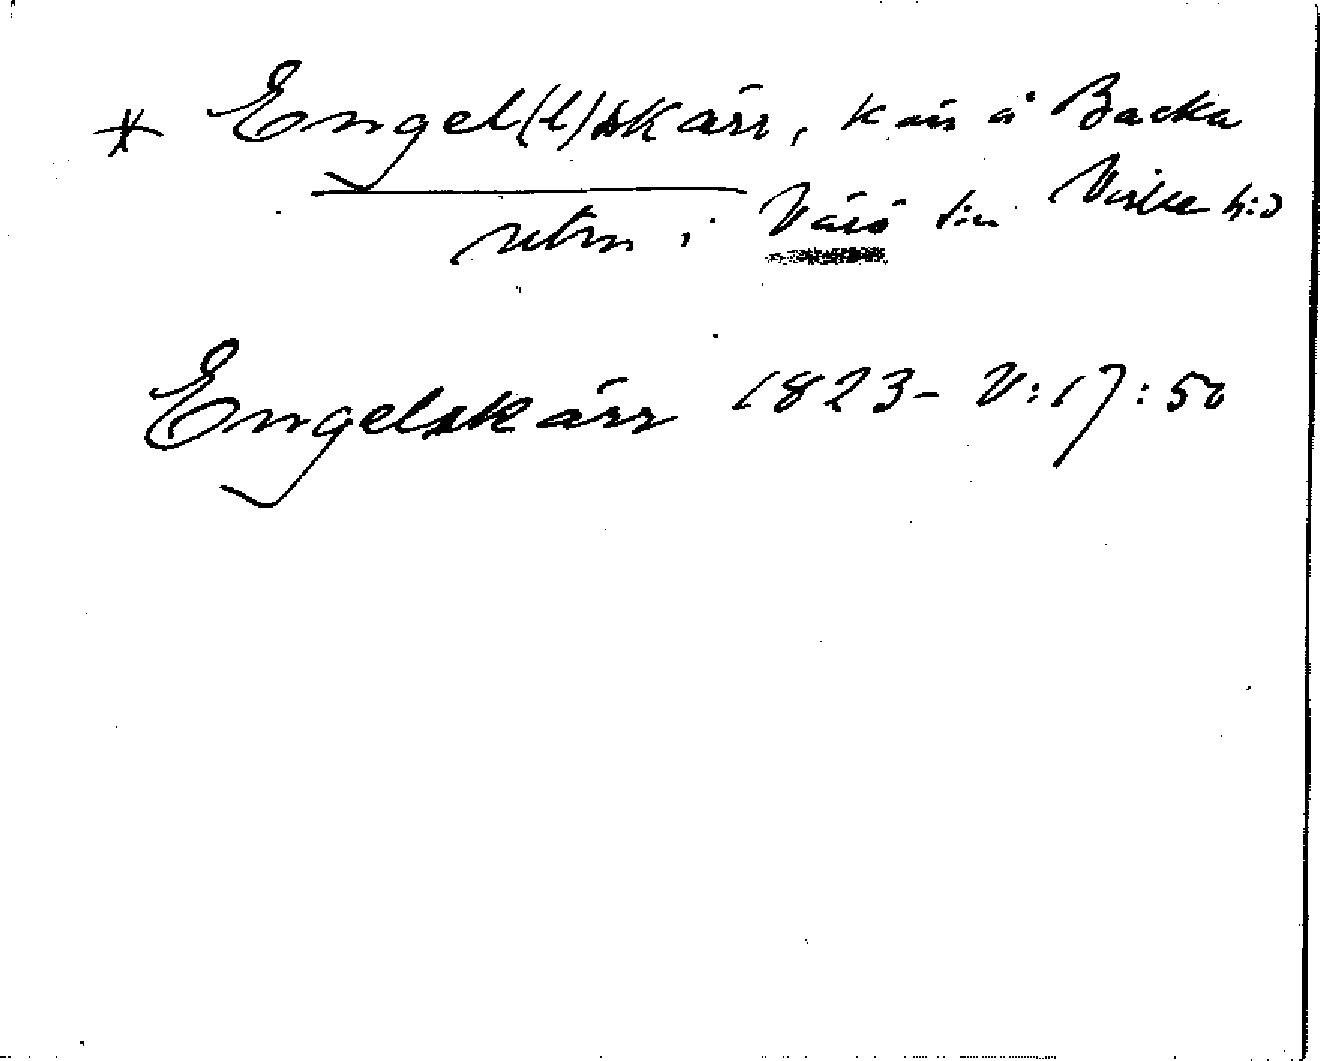 * Engel(l)skärr, kärr å Backa
utm i Värö sn Viske h:d
Engelskärr 1823 - V:17:50